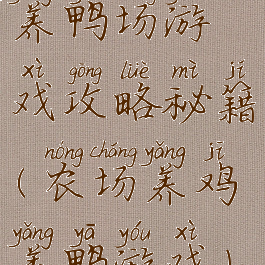 养鸭场游
xì gōng lüè mì jí
戏攻略秘籍
nóng chǎng yǎng jī
(农场养鸡
yǎng yā yóu xì
养鸭游戏)